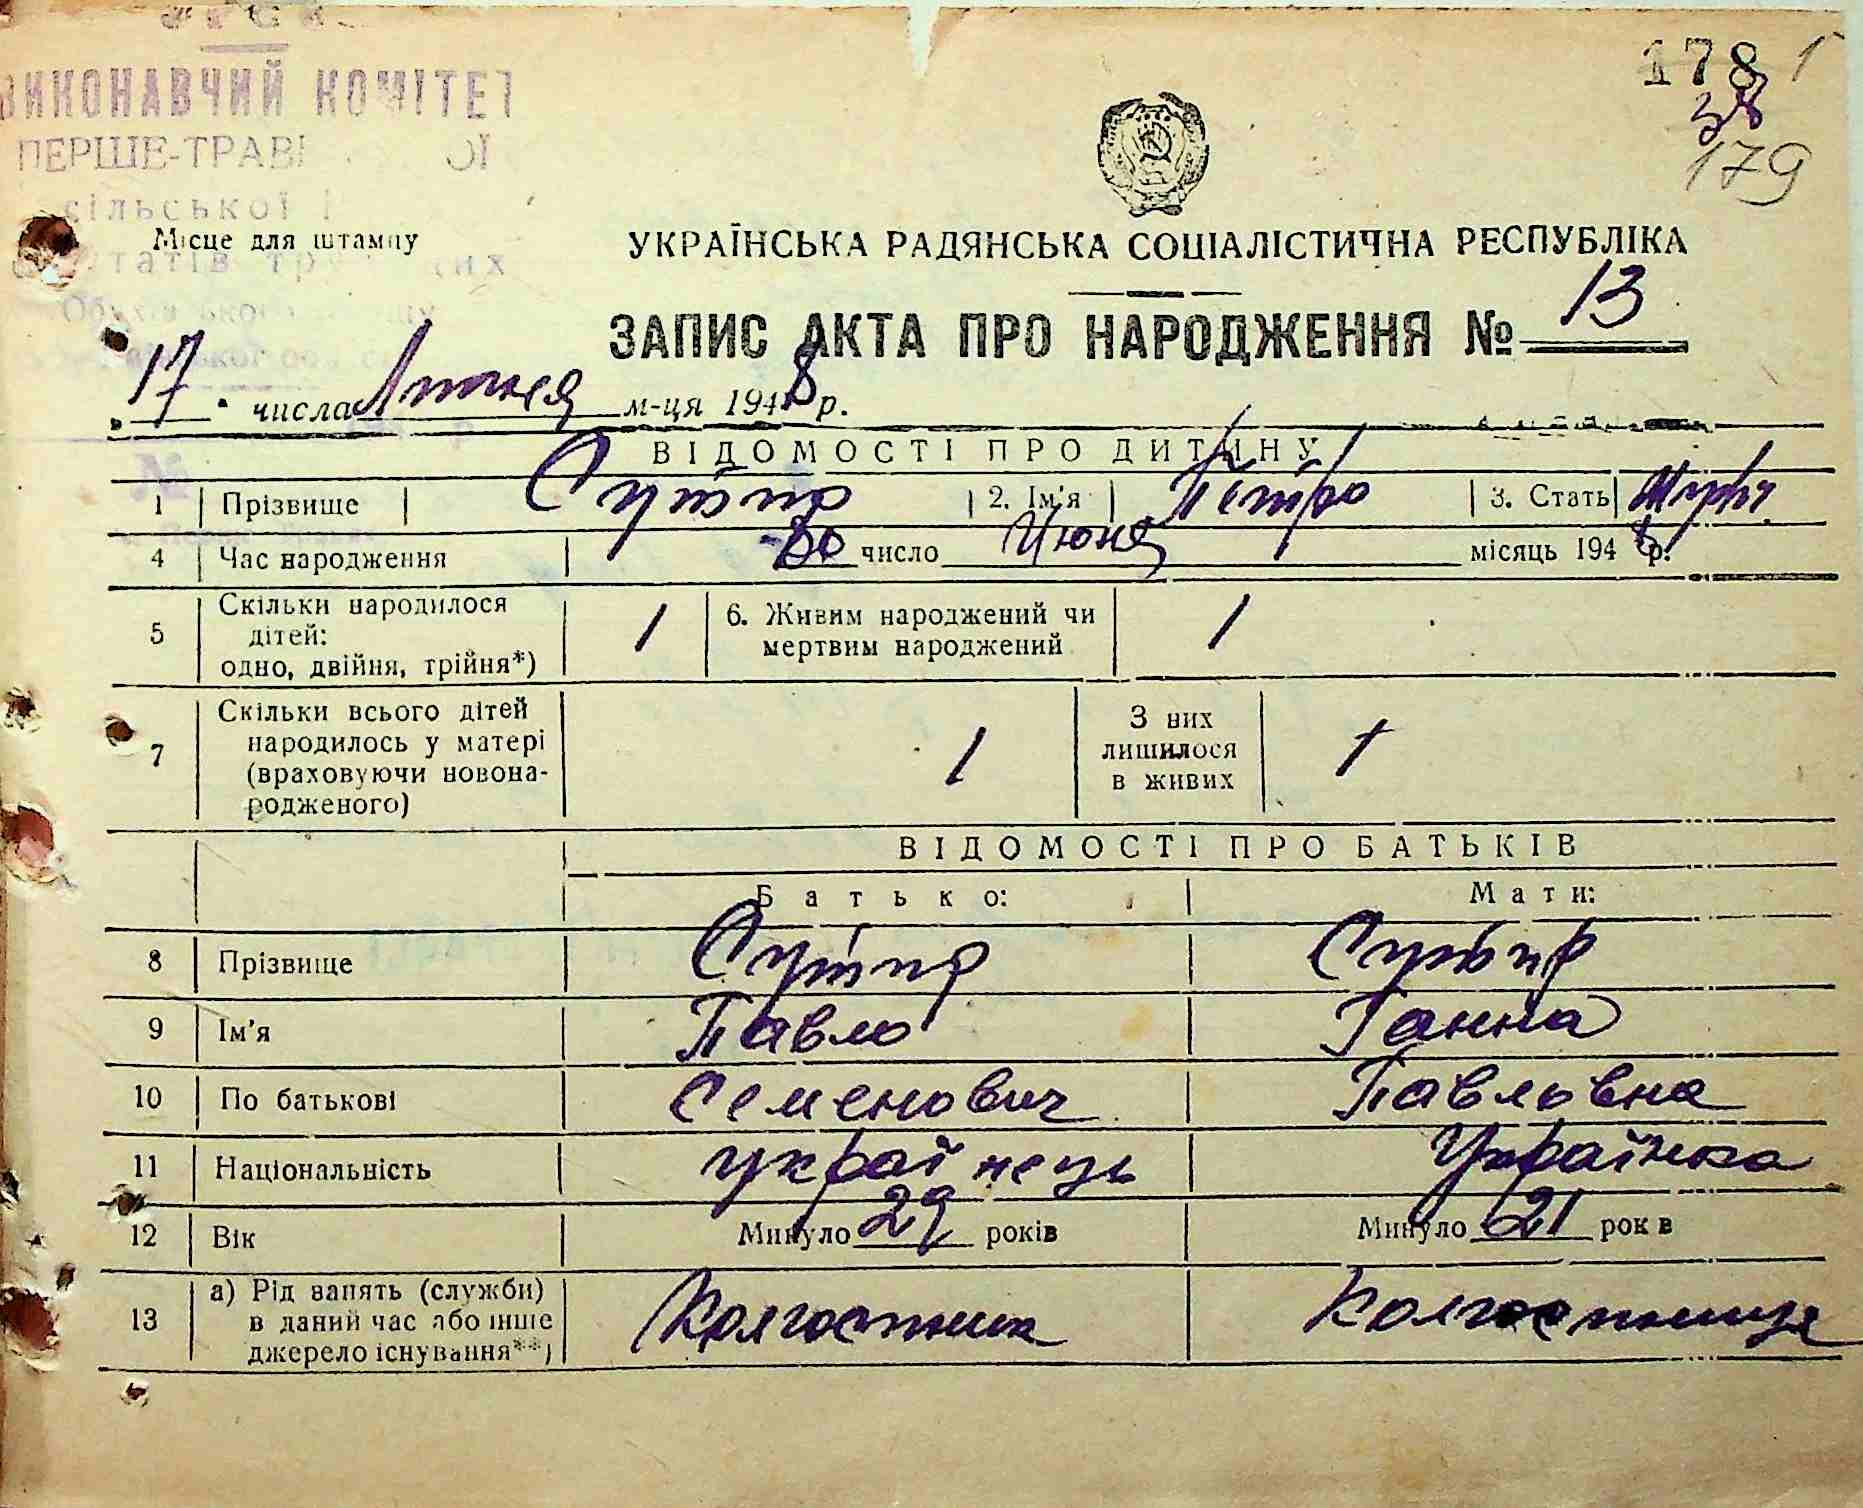 ВИКОНАВЧИЙ КОМІТЕТ
ПЕРШЕ-ТРАВ
сільської
Місце для штампу
178
38
179
УКРАЇНСЬКА РАДЯНСЬКА СОЦІАЛІСТИЧНА РЕСПУБЛІКА
ЗАПИС АКТА ПРО НАРОДЖЕННЯ № 13
„17" числа Липня м-ця 1948 р.
ВІДОМОСТІ ПРО ДИТИНУ
1 Прізвище 2. Ім'я Петро 3. Стать
4 Час народження 30 число Июня місяць 1948 р.
5 Скільки народилося дітей: одно, двійня, трійня*) 1 6. Живим народжений чи мертвим народжений 1
7 Скільки всього дітей народилось у матері (враховуючи новонародженого) 1 З них лишилося в живих 1
ВІДОМОСТІ ПРО БАТЬКІВ
Батько: Мати:
8 Прізвище
9 Ім'я Павло Ганна
10 По батькові Семенович Павловна
11 Національність українець Українка
12 Вік Минуло 29 років Минуло 21 рок в
13 а) Рід занять (служби) в даний час або інше джерело існування**) Колгоспник Колгоспниця